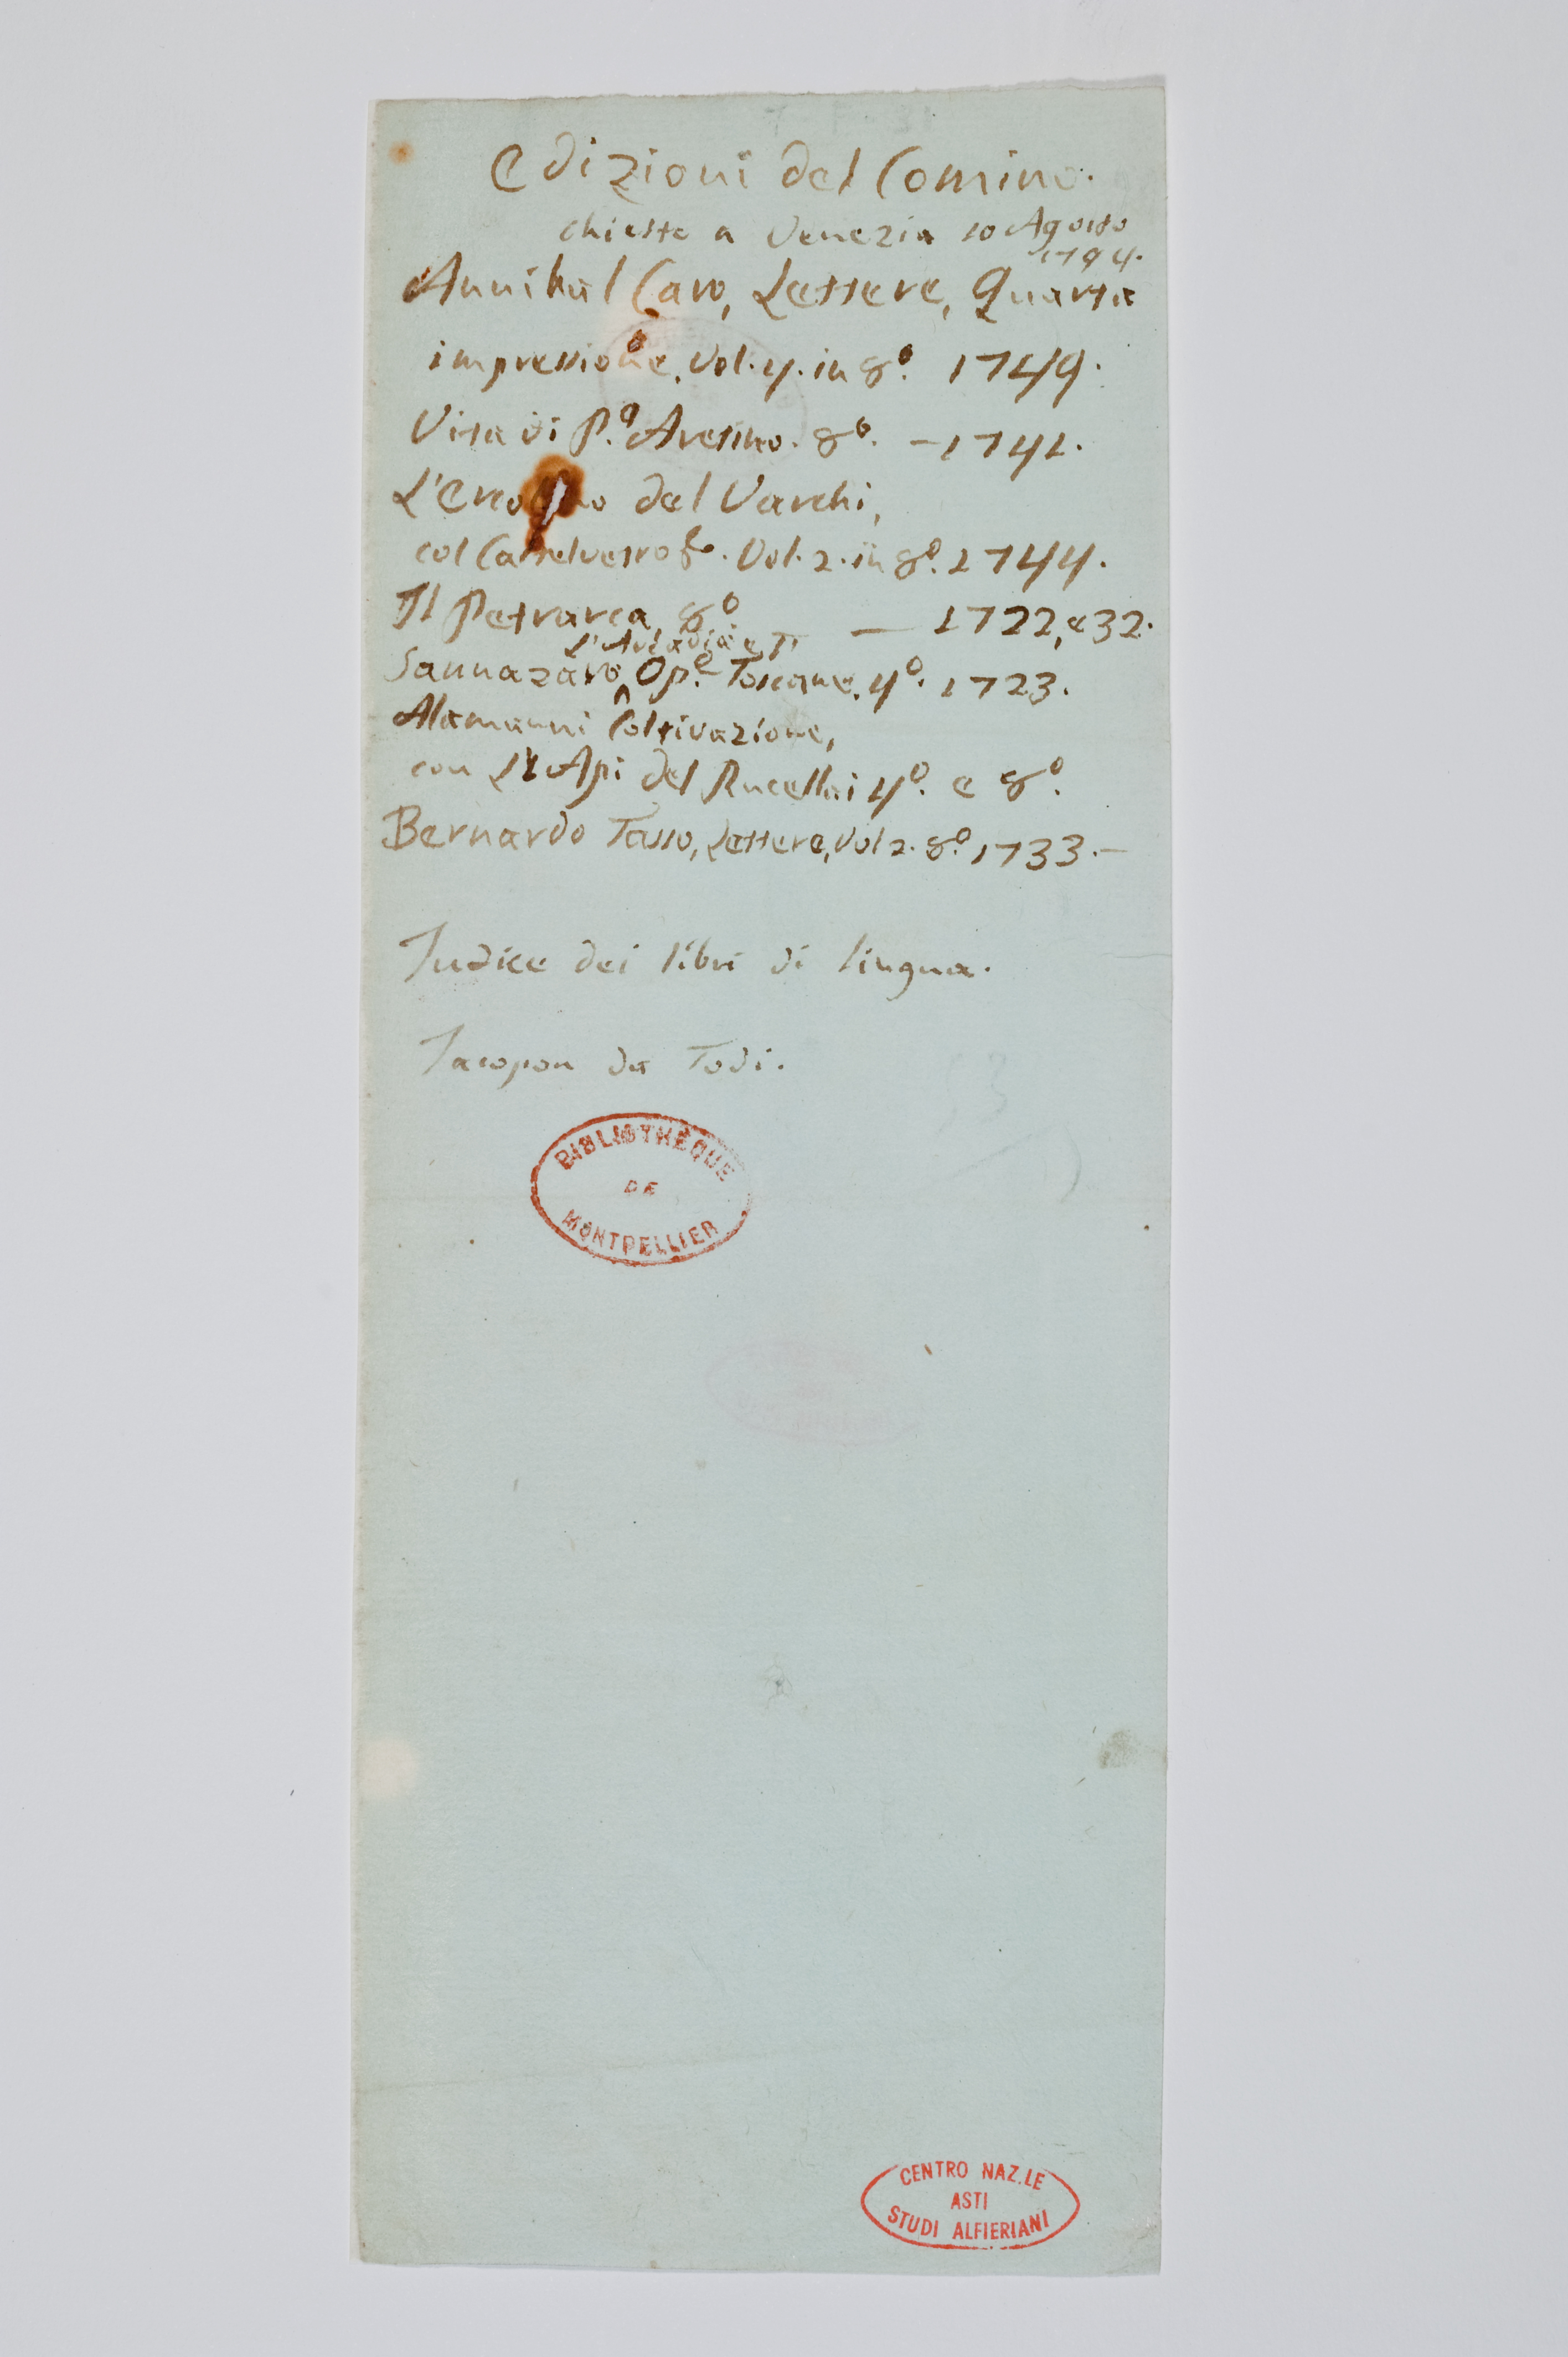 Edizioni del Comino.
chieste a Venezia 10 Agosto
1794.
Annibal Caro, Lettere, Quarta
impressione, Vol. 4. in 8º. 1749.
Vita di P.º Aretino. 8º. — 1741.
L'Erco no del Varchi,
col Castelvetro. Vol. 2. in 8º. 1744.
Il Petrarca, 8º — 1722, e 32.
L'Arcadia e
Sannazaro, Op.e Toscane, 4º. 1723.
Alamanni Coltivazione,
con Api del Rucellai 4º. e 8º.
Bernardo Tasso, Lettere, Vol 2. 8º. 1733. —
Indice dei libri di lingua.
Jacopon da Todi.
BIBLIOTHÈQUE
DE
MONTPELLIER
CENTRO NAZ.LE
ASTI
STUDI ALFIERIANI